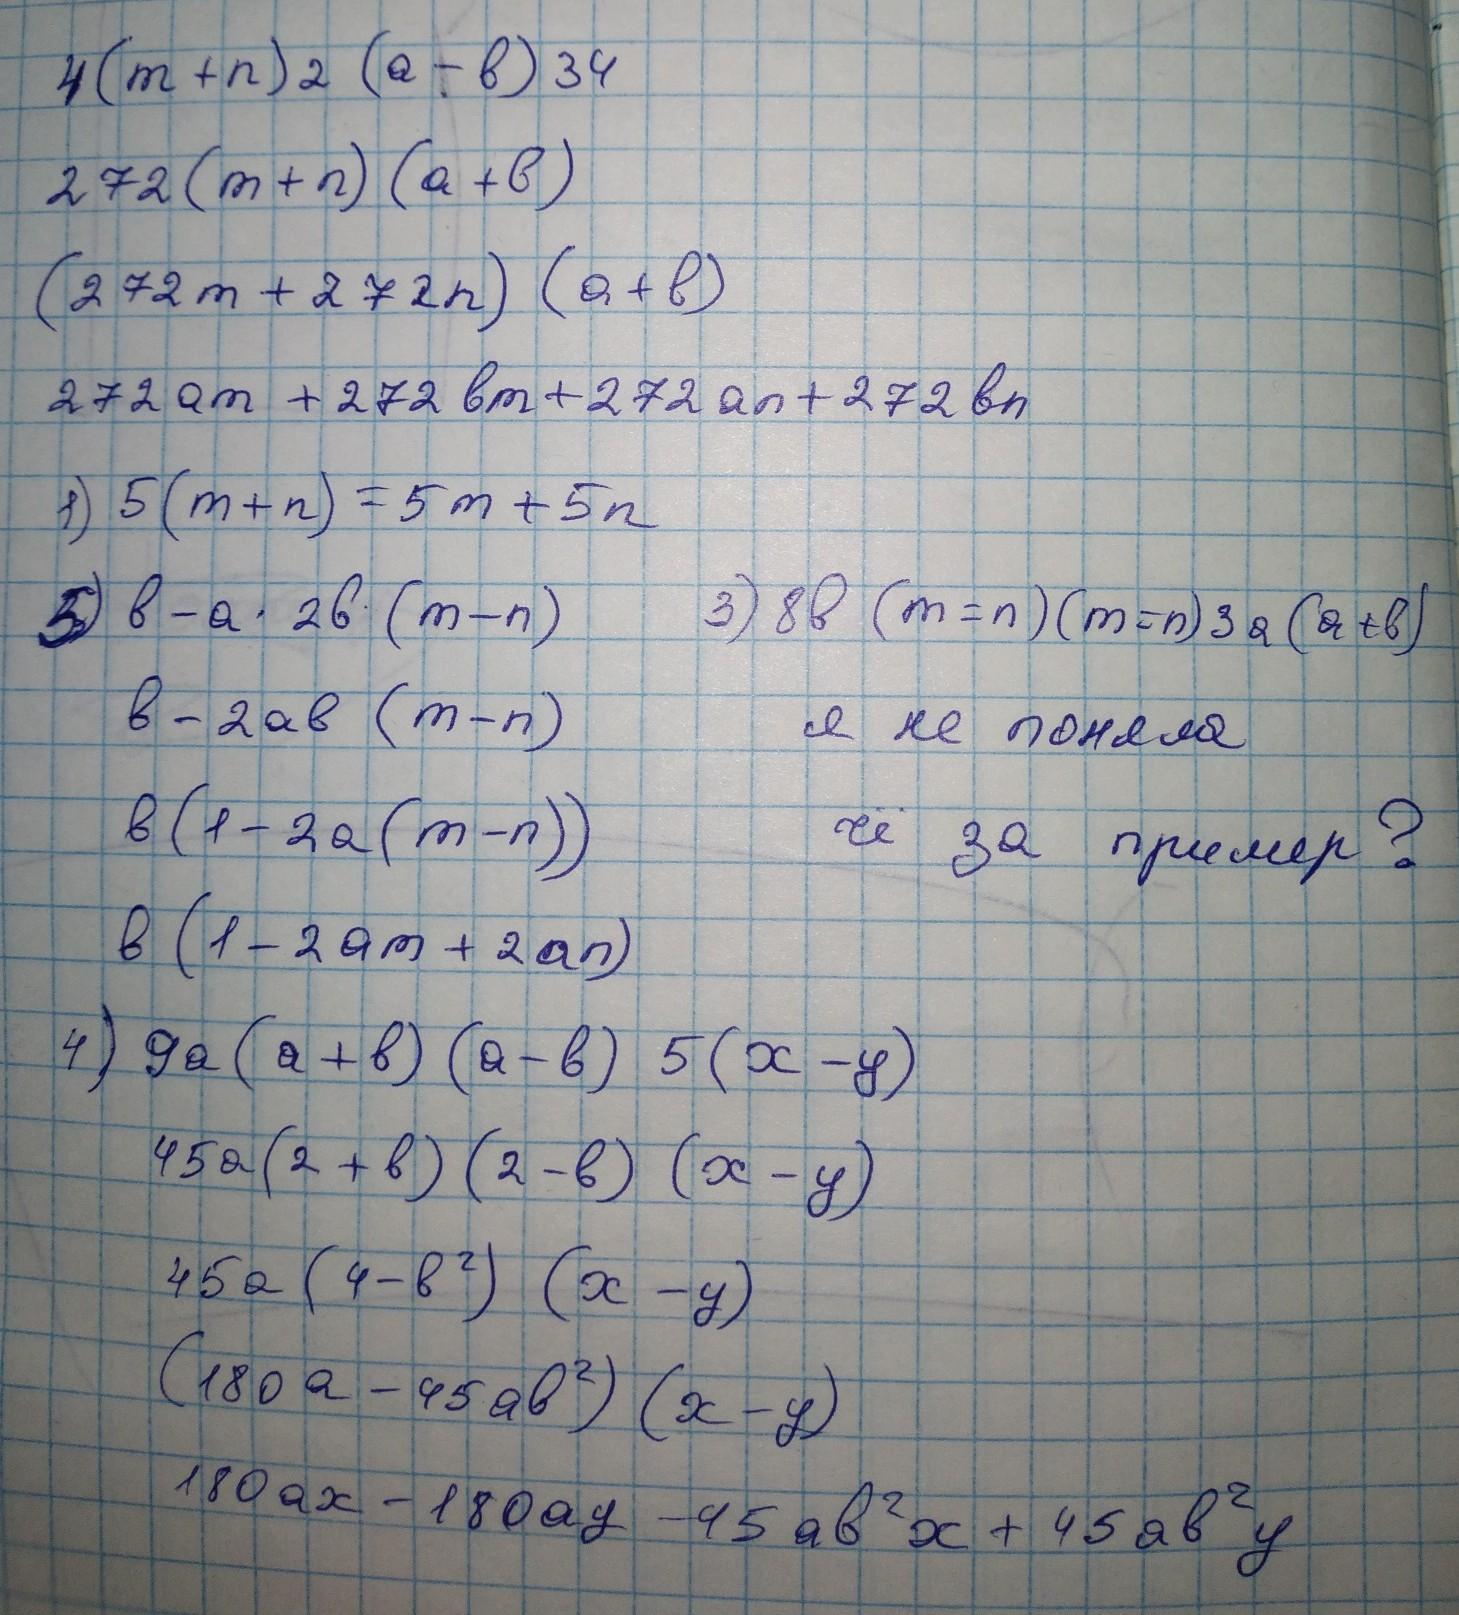 4(m+n)2(a-в)34
272(m+n)(a+в)
(272m+272n)(a+в)
272am+272вm+272an+272вn
1) 5(m+n)=5m+5n
5) в-a·2в·(m-n)
в-2aв(m-n)
в(1-2a(m-n))
в(1-2am+2an)
3) 8в(m=n)(m=n)3a(a+в)
я не поняла
чё за пример?
4) 9a(a+в)(a-в) 5(x-y)
45a(2+в)(2-в)(x-y)
45a(4-в²)(x-y)
(180a-45aв²)(x-y)
180ax-180ay-45aв²x+45aв²y